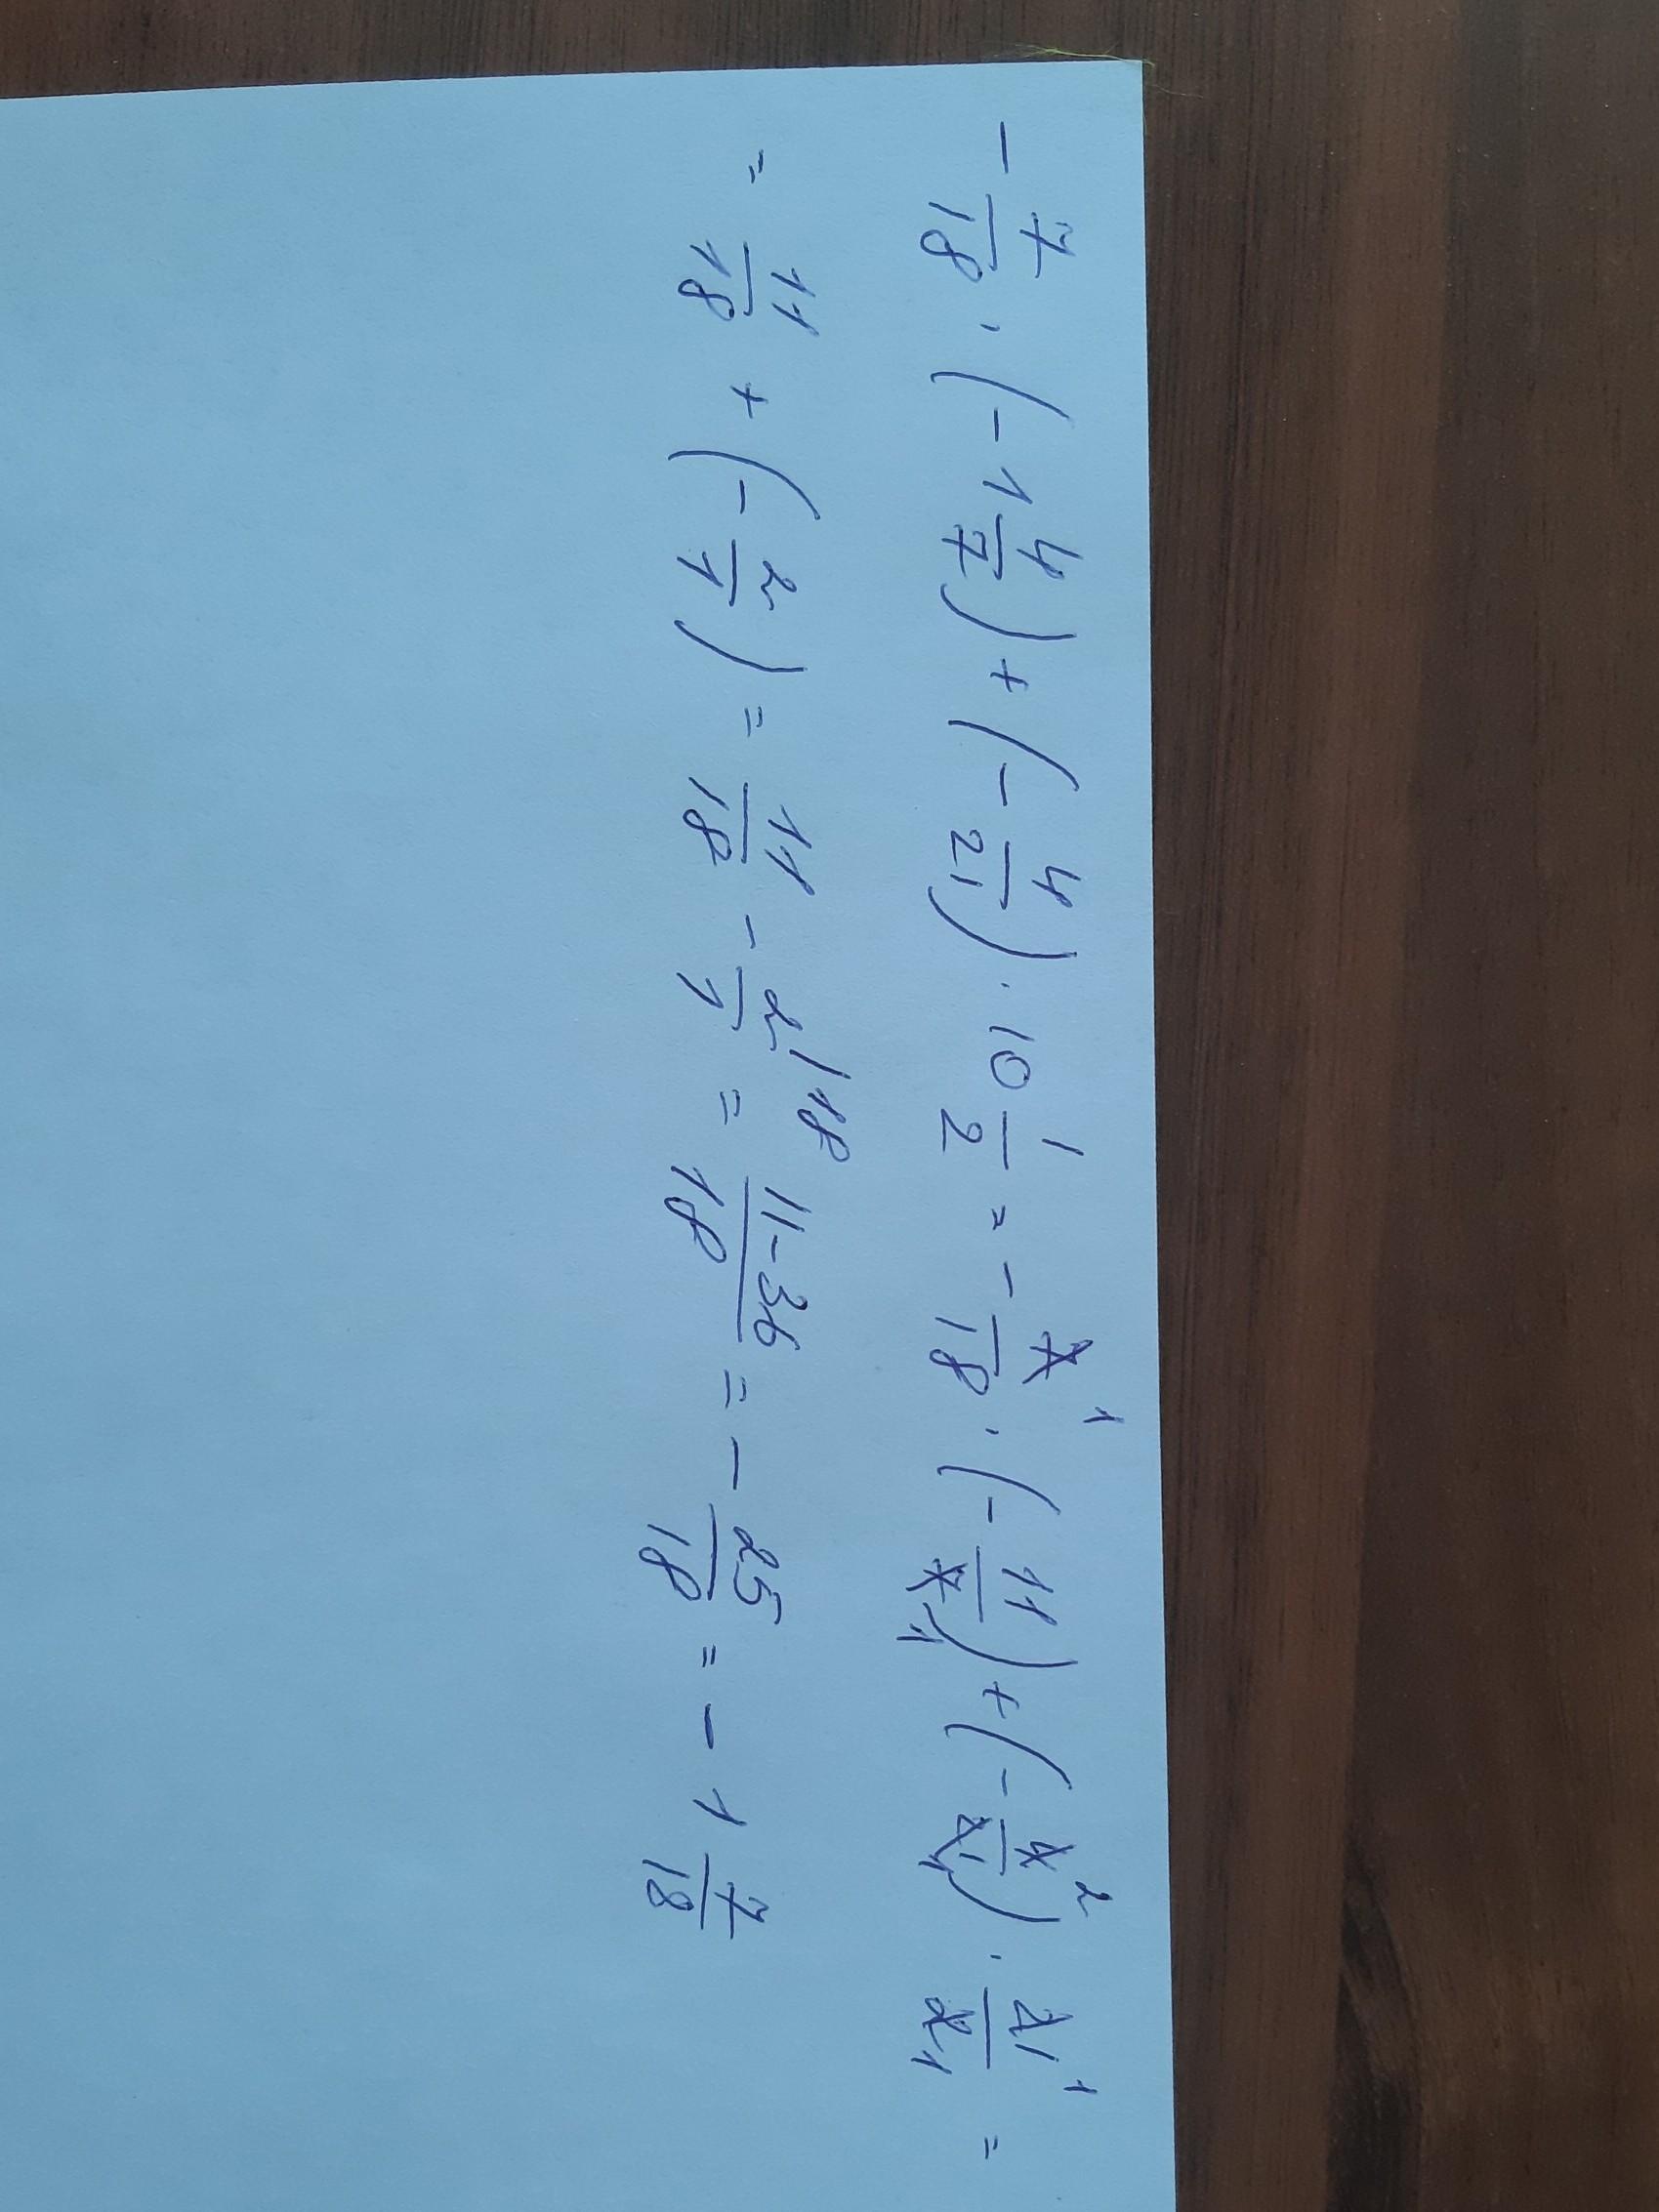 - 7/18 · (- 1 4/7) + (- 4/21) · 10 1/2 = - 7/18 ¹ · (- 11/7 ₁) + (- 4/21 ²₁) · 21/2 ¹₁ =
= 11/18 + (- 2/1) = 11/18 - 2/1 |18 = 11-36/18 = - 25/18 = - 1 7/18